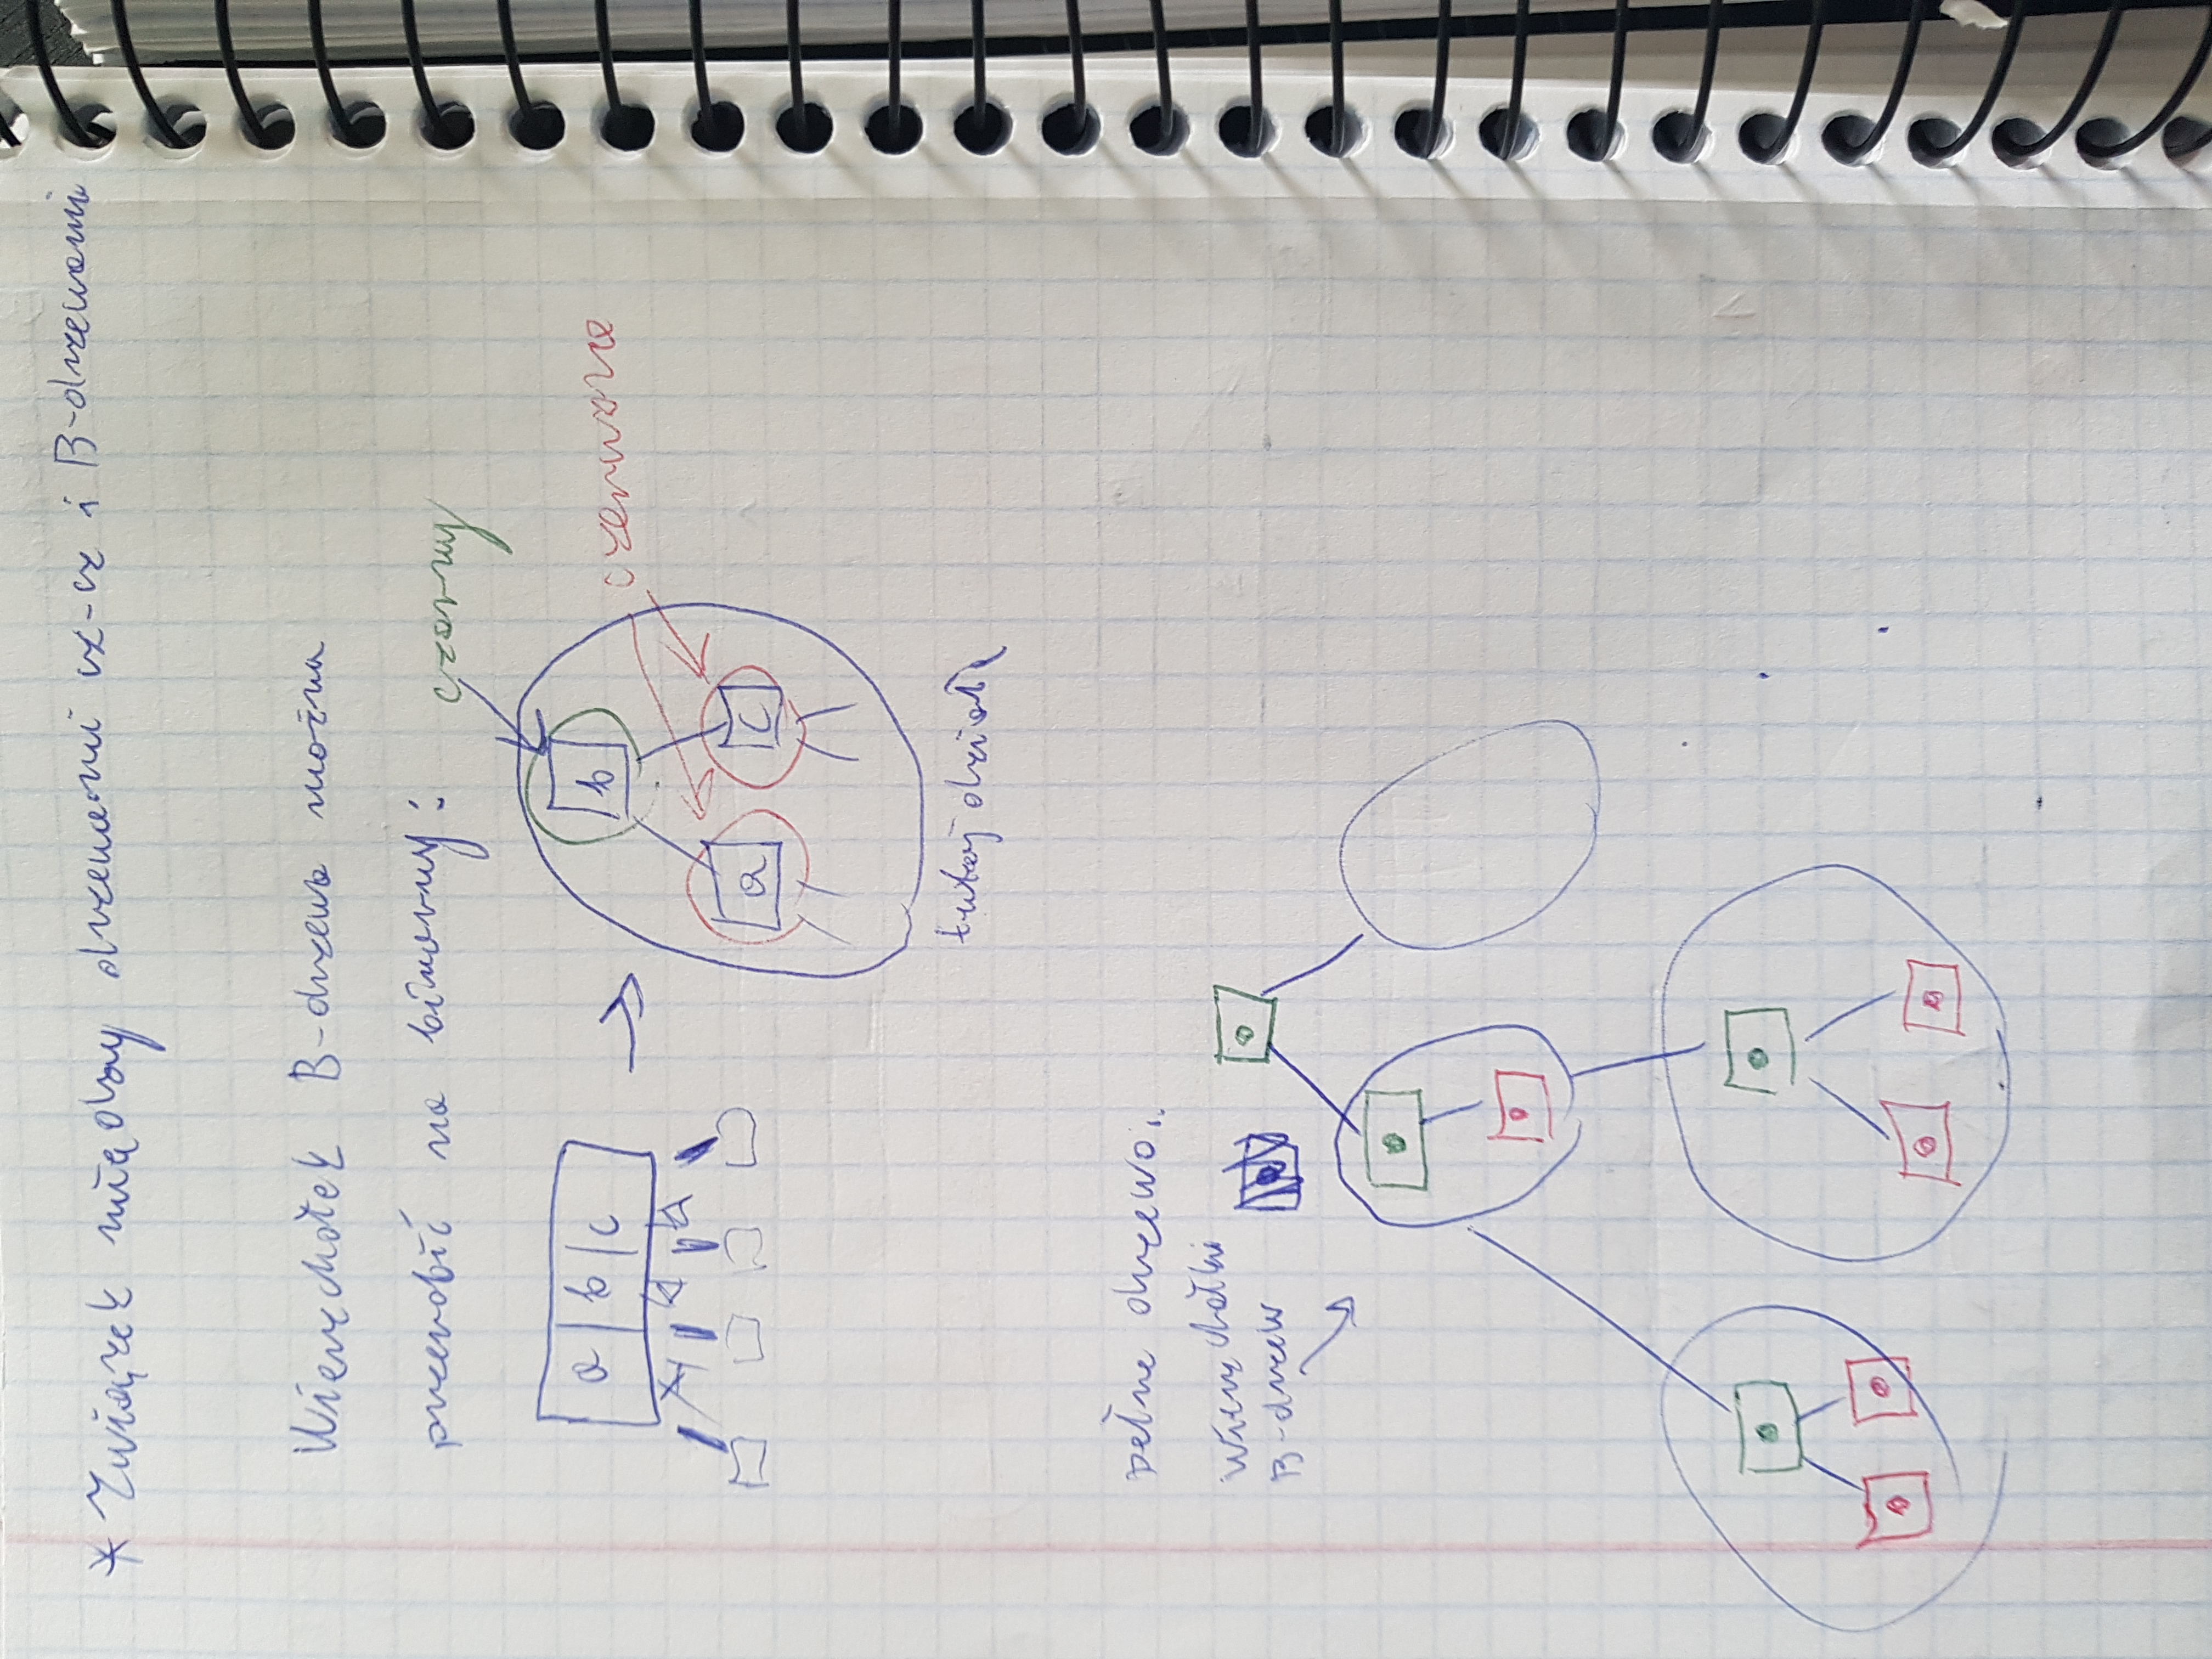 * Związek między drzewami cz-cz i B-drzewami
Wierzchołek B-drzewa można
przerobić na binarny:
czarny
a | b | c
b
a c
czerwone
tutaj
pełne drzewo:
wierzchołki
B-drzew